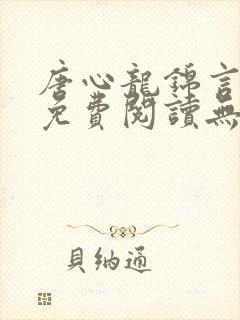 唐心龍錦言
免費閱讀無
貝納通